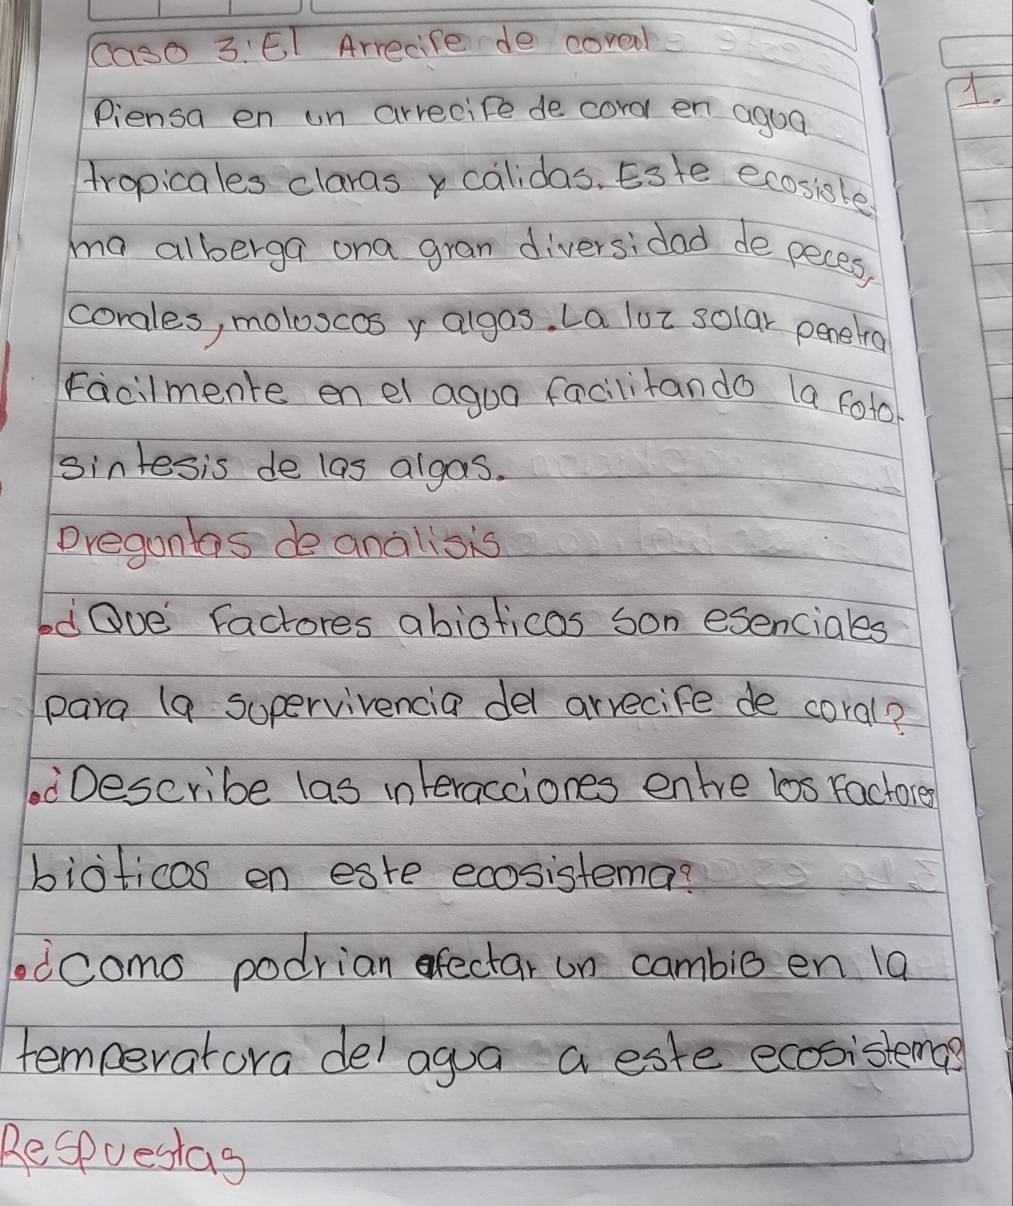 Caso 3: El Arrecife de coral
Piensa en un arrecife de coral en agua
tropicales claras y cálidas. Este ecosiste-
ma alberga una gran diversidad de peces,
corales, moluscos y algas. La luz solar penetra
Fácilmente en el agua facilitando la foto-
sintesis de las algas.
Preguntas de analisis
• ¿Qué Factores abióticos son esenciales
para la supervivencia del arrecife de coral?
• ¿Describe las interacciones entre los Factores
bióticos en este ecosistema?
• ¿como podrian afectar un cambio en la
temperatura del agua a este ecosistema?
Respuestas
1.